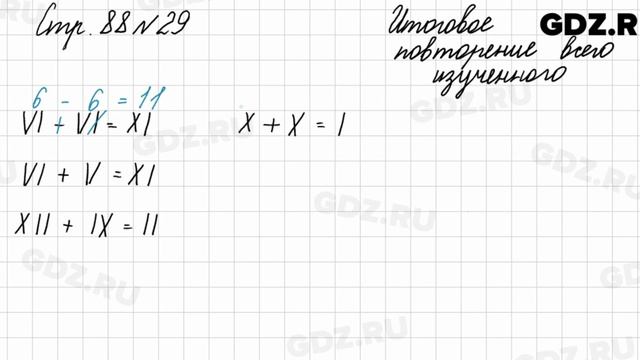 Стр. 88 № 29
Итоговое
повторение всего
изученного
GDZ.R
6 - 6 = 11
VI + VI = XI
X + X = I
VI + V = XI
XII + IX = II
GDZ.RU
GDZ.RU
GDZ.RU
GDZ.RU
GDZ.RU
GDZ.RU